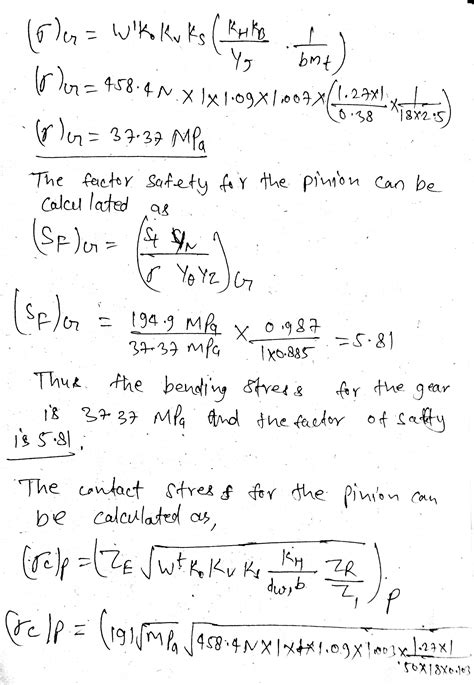 (σ)G = WᵗK₀ Kv Ks (KH KB / YJ · 1 / bmt)
(σ)G = 458.4 N × 1 × 1.09 × 1.007 × (1.27×1 / 0.38 × 1 / 18×2.5)
(σ)G = 37.37 MPa
The factor safety for the pinion can be
calculated as
(SF)G = (St YN / σ YθYZ)G
(SF)G = 194.9 MPa / 37.37 MPa × 0.987 / 1×0.885 = 5.81
Thus the bending stress for the gear
is 37.37 MPa and the factor of safty
is 5.81.
The contact stress for the pinion can
be calculated as,
(σc)P = (ZE √Wᵗ K₀ Kv Ks KH / dw, b ZR / ZI)P
(σc)P = (191√MPa √458.4N×1×1.09×1.003× 1.27×1 / 50×18×0.103